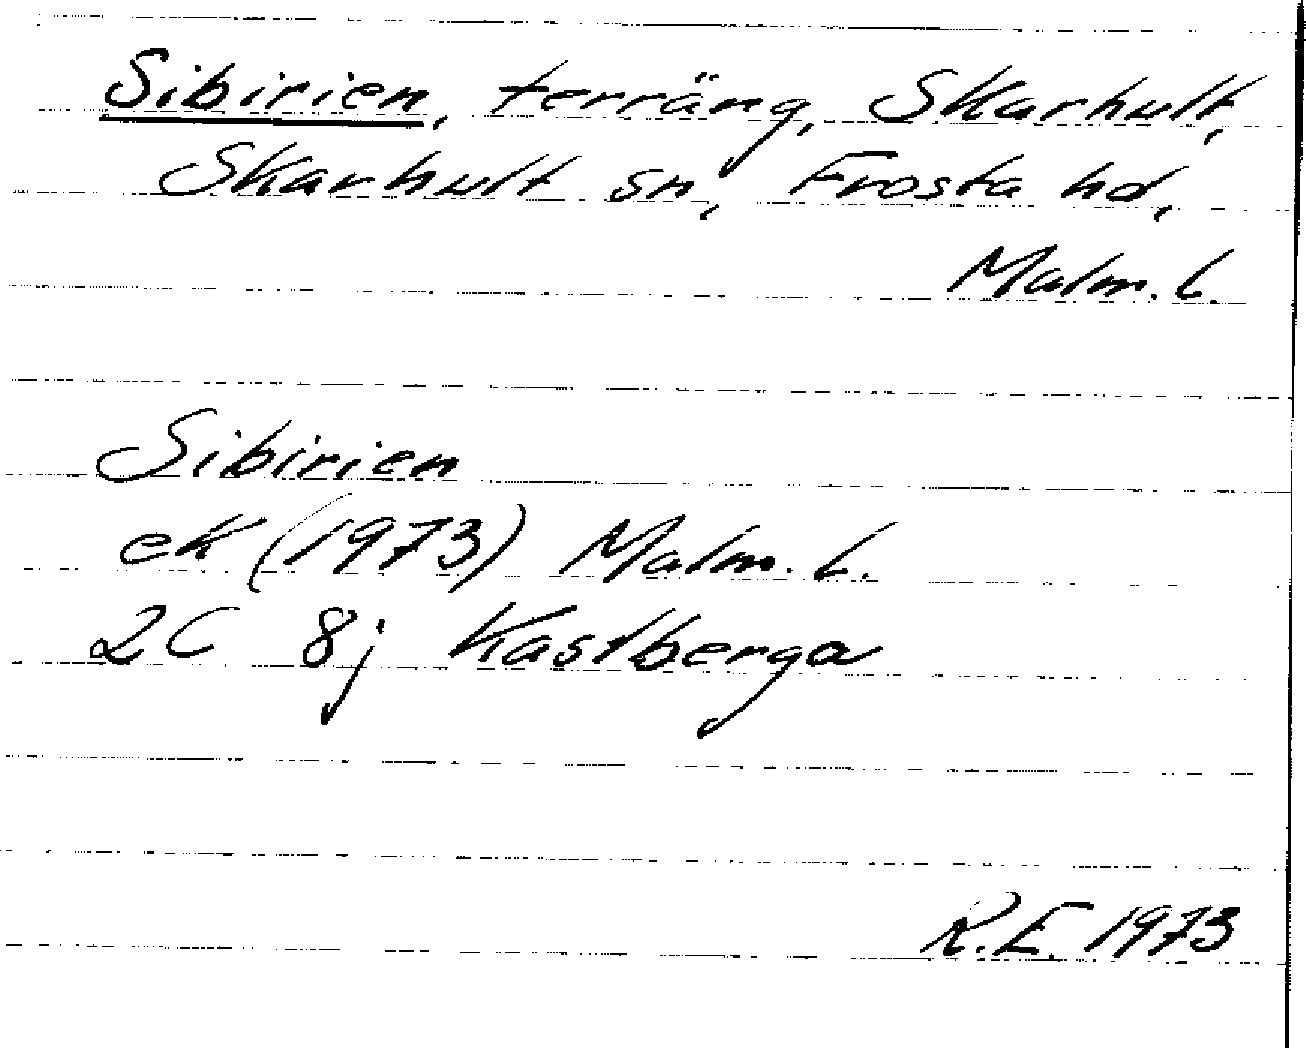 Sibirien, terräng, Skarhult,
Skarhult sn, Frosta hd,
Malm. l.
Sibirien
ek (1973) Malm. l.
2C 8j Kastberga
R.E. 1973